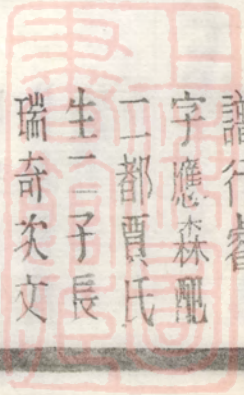 諱行睿
字應森配
二都賈氏
生二子長
瑞奇次文